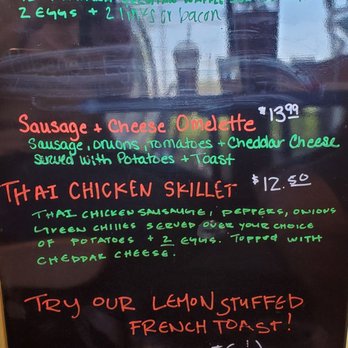 2 Eggs + 2 links or bacon
$13.99
Sausage + Cheese Omelette
Sausage, onions, tomatoes + Cheddar Cheese
served with Potatoes + Toast
THAI CHICKEN SKILLET $12.50
THAI CHICKEN SAUSAUGE, PEPPERS, ONIONS
GREEN CHILIES SERVED OVER YOUR CHOICE
OF POTATOES + 2 EGGS. TOPPED WITH
CHEDDAR CHEESE.
TRY OUR LEMON STUFFED
FRENCH TOAST!